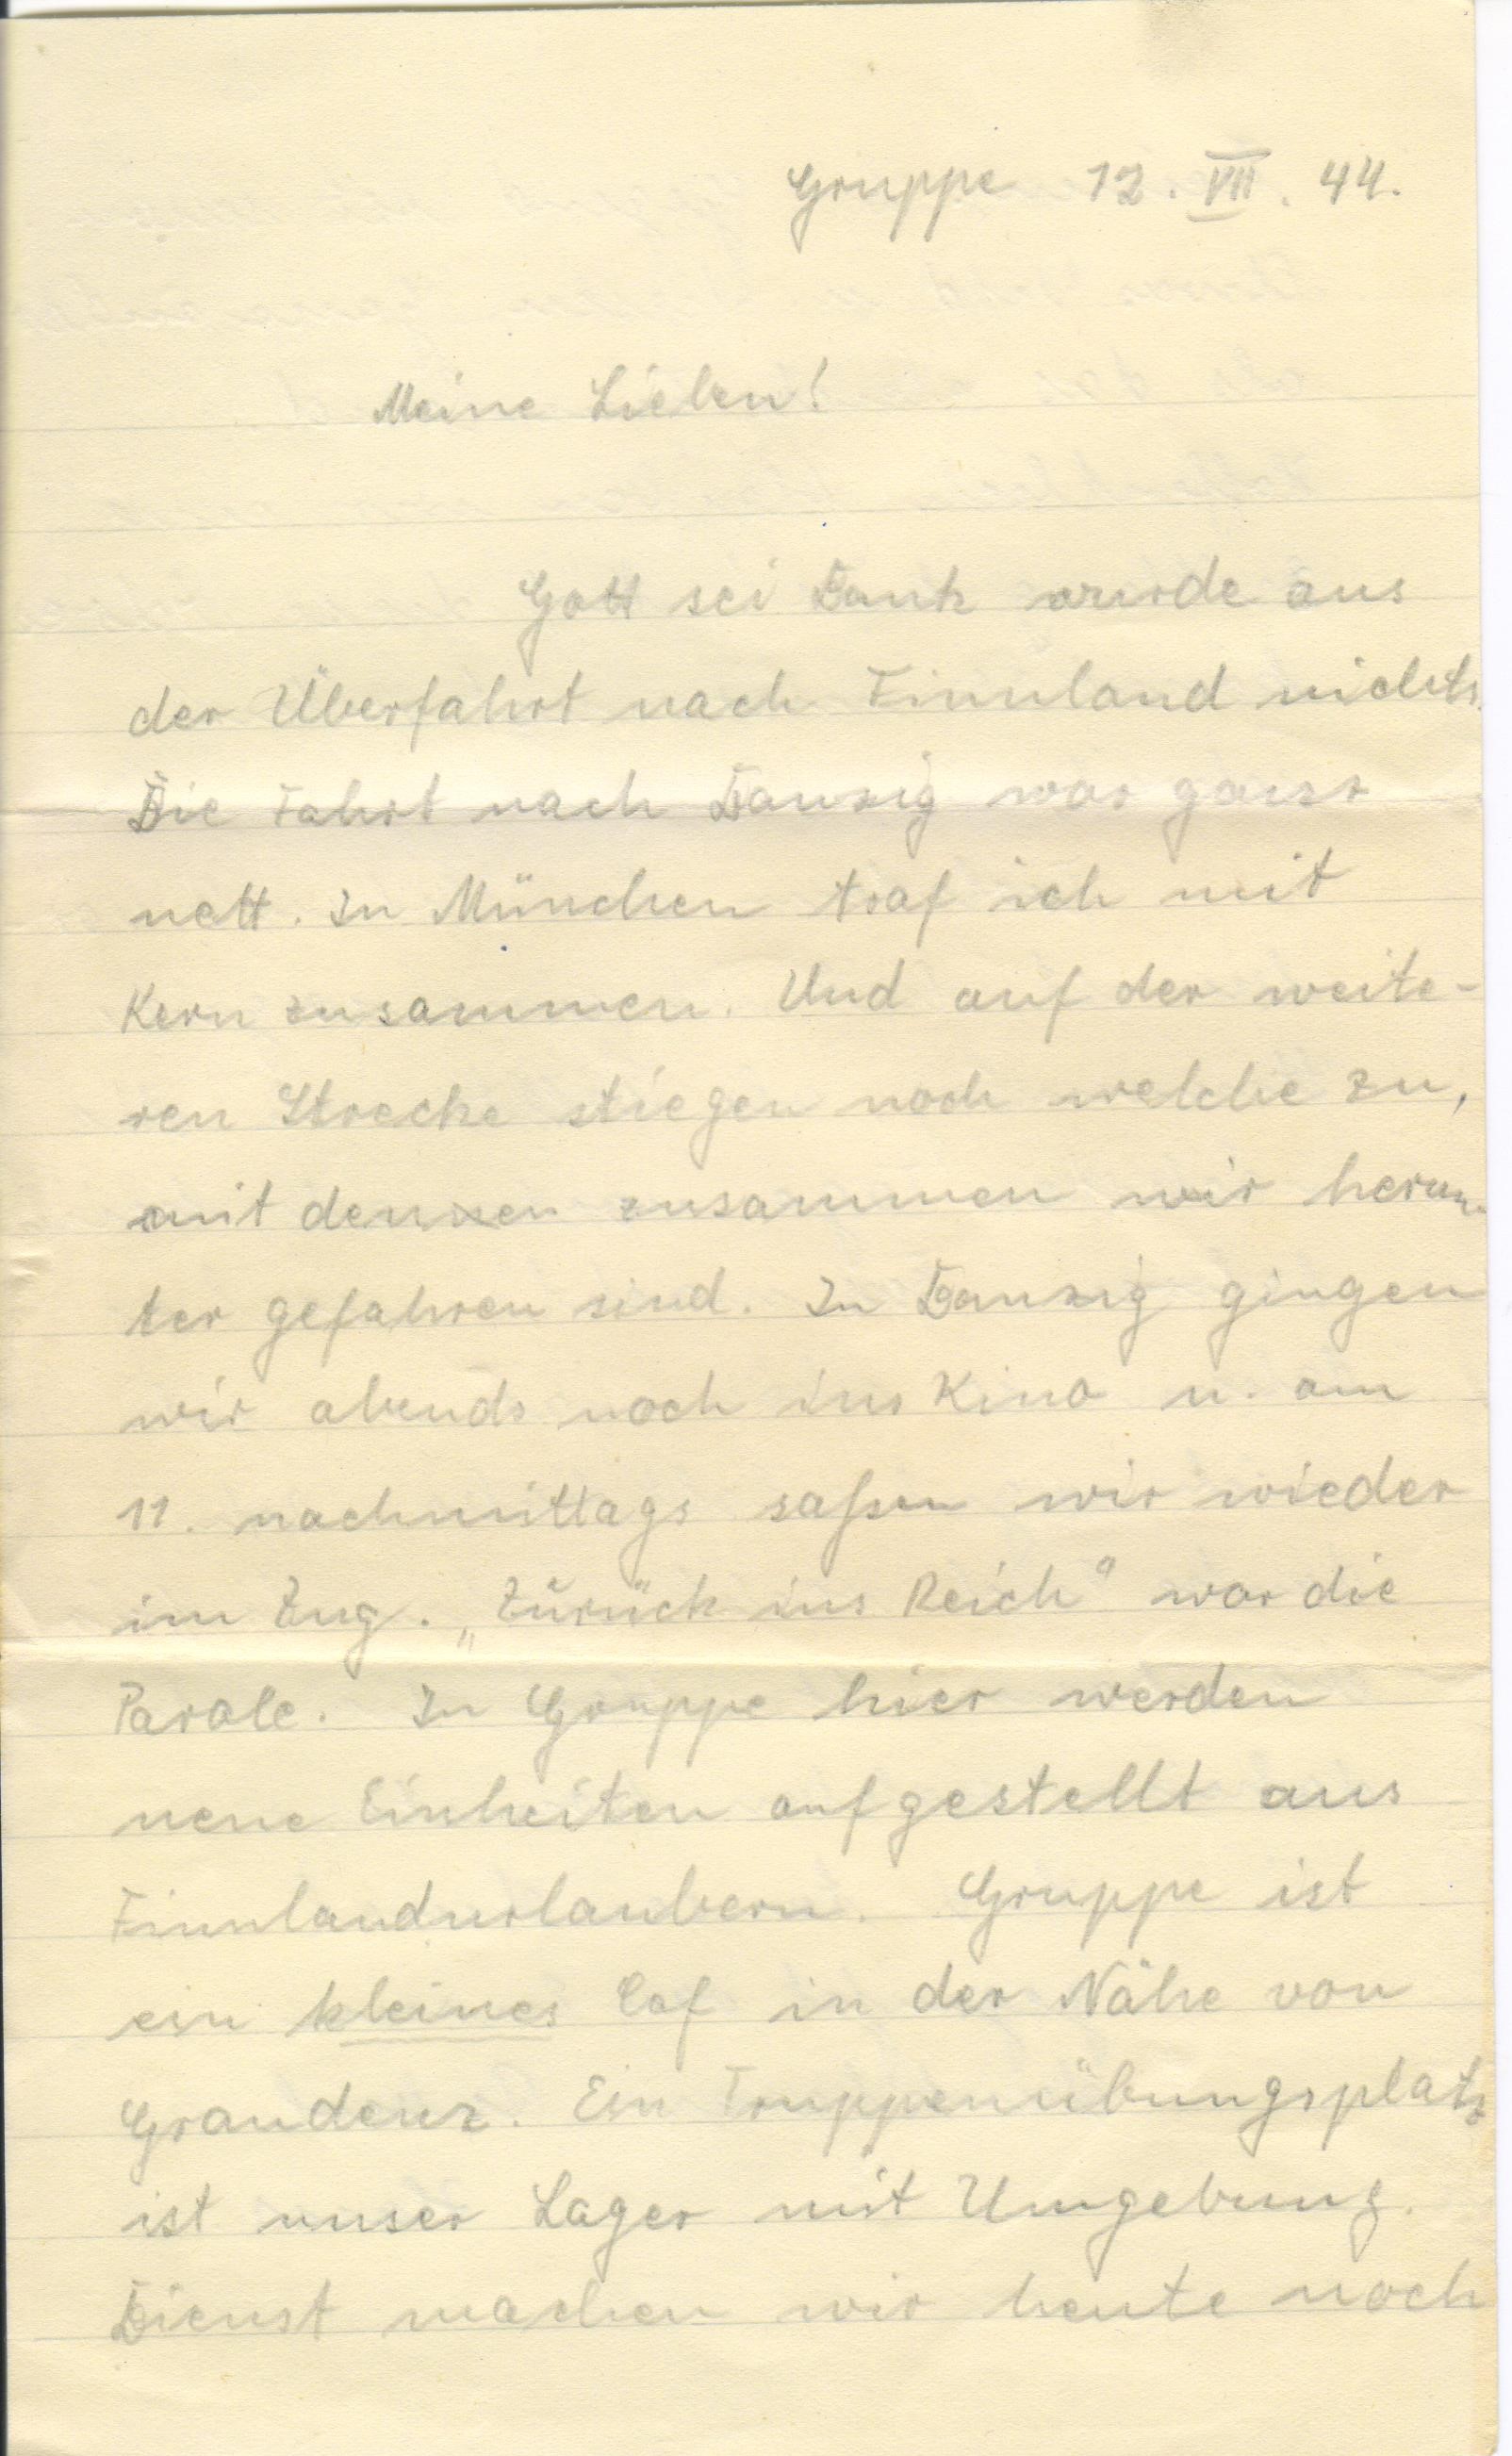 Gruppe 12. VII. 44.
Meine Lieben!
Gott sei Dank wurde aus
der Überfahrt nach Finnland nichts.
Die Fahrt nach Danzig war ganz
nett. In München traf ich mit
Kern zusammen. Und auf der weite-
ren Strecke stiegen noch welche zu,
mit denen zusammen wir herun-
ter gefahren sind. In Danzig gingen
wir abends noch ins Kino u. am
11. nachmittags saßen wir wieder
im Zug. „Zurück ins Reich“ war die
Parole. In Gruppe hier werden
neue Einheiten aufgestellt aus
Finnlandurlaubern. Gruppe ist
ein kleines Caf in der Nähe von
Graudenz. Ein Truppenübungsplatz
ist unser Lager mit Umgebung.
Dienst machen wir heute noch